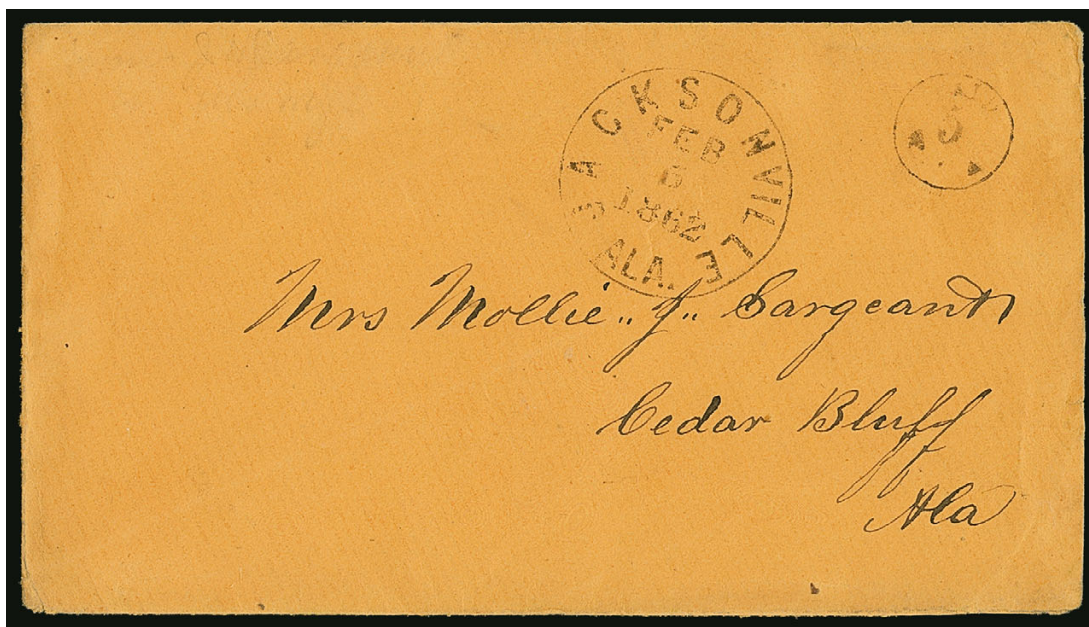 JACKSONVILLE ALA.
FEB
5
1862
5
Mrs Mollie "J" Sargeant
Cedar Bluff
Ala